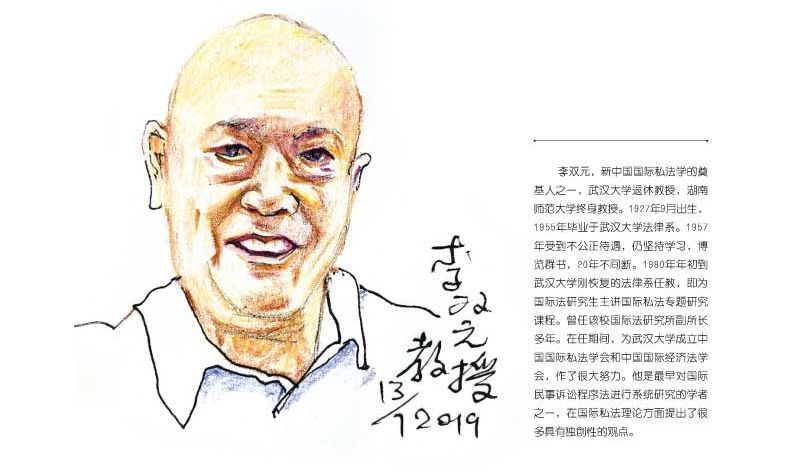 李双元
教授
13/7 2019
李双元，新中国国际私法学的奠
基人之一，武汉大学退休教授，湖南
师范大学终身教授。1927年9月出生，
1955年毕业于武汉大学法律系。1957
年受到不公正待遇，仍坚持学习，博
览群书，20年不间断。1980年年初到
武汉大学刚恢复的法律系任教，即为
国际法研究生主讲国际私法专题研究
课程。曾任该校国际法研究所副所长
多年。在任期间，为武汉大学成立中
国国际私法学会和中国国际经济法学
会，作了很大努力。他是最早对国际
民事诉讼程序法进行系统研究的学者
之一，在国际私法理论方面提出了很
多具有独创性的观点。